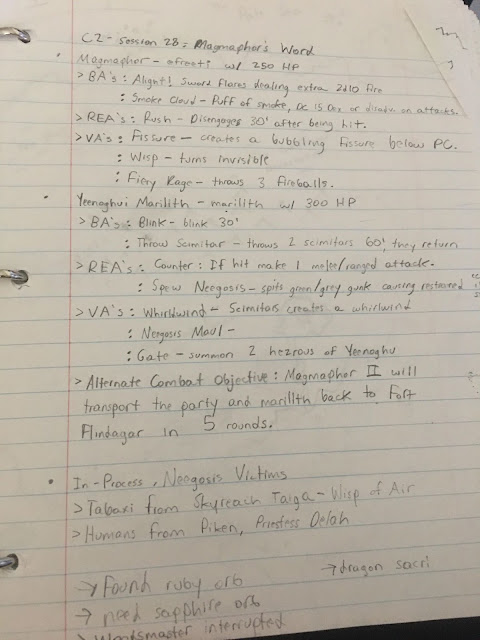 C2 - Session 28: Magmaphor's Word
Magmaphor - efreeti w/ 250 HP
> BA's: Alight! Sword flares dealing extra 2d10 fire
: Smoke Cloud - Puff of smoke, DC 15 Dex or disadv. on attacks.
> REA's: Rush - Disengages 30' after being hit.
> VA's: Fissure - creates a bubbling fissure below PC.
: Wisp - turns invisible
: Fiery Rage - throws 3 fireballs.
Yeenoghui Marilith - marilith w/ 300 HP
> BA's: Blink - blink 30'
: Throw Scimitar - throws 2 scimitars 60', they return
> REA's: Counter: If hit make 1 melee/ranged attack.
: Spew Neogosis - spits green/grey gunk causing restrained
> VA's: Whirlwind - Scimitars creates a whirlwind
: Neogosis Maul -
: Gate - summon 2 hezrous of Yeenoghu
> Alternate Combat Objective: Magmaphor II will
transport the party and marilith back to Fort
Flindagar in 5 rounds.
In-Process, Neogosis Victims
> Tabaxi from Skyreach Taiga - Wisp of Air
> Humans from Piken, Priestess Delah
→ dragon sacri
→ Found ruby orb
→ need sapphire orb
> Woodsmaster interrupted